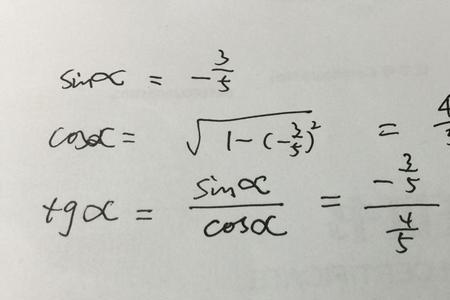 sinα = -3/5
cosα = √(1-(-3/5)²) = 4/
tgα = sinα/cosα = (-3/5)/(4/5)